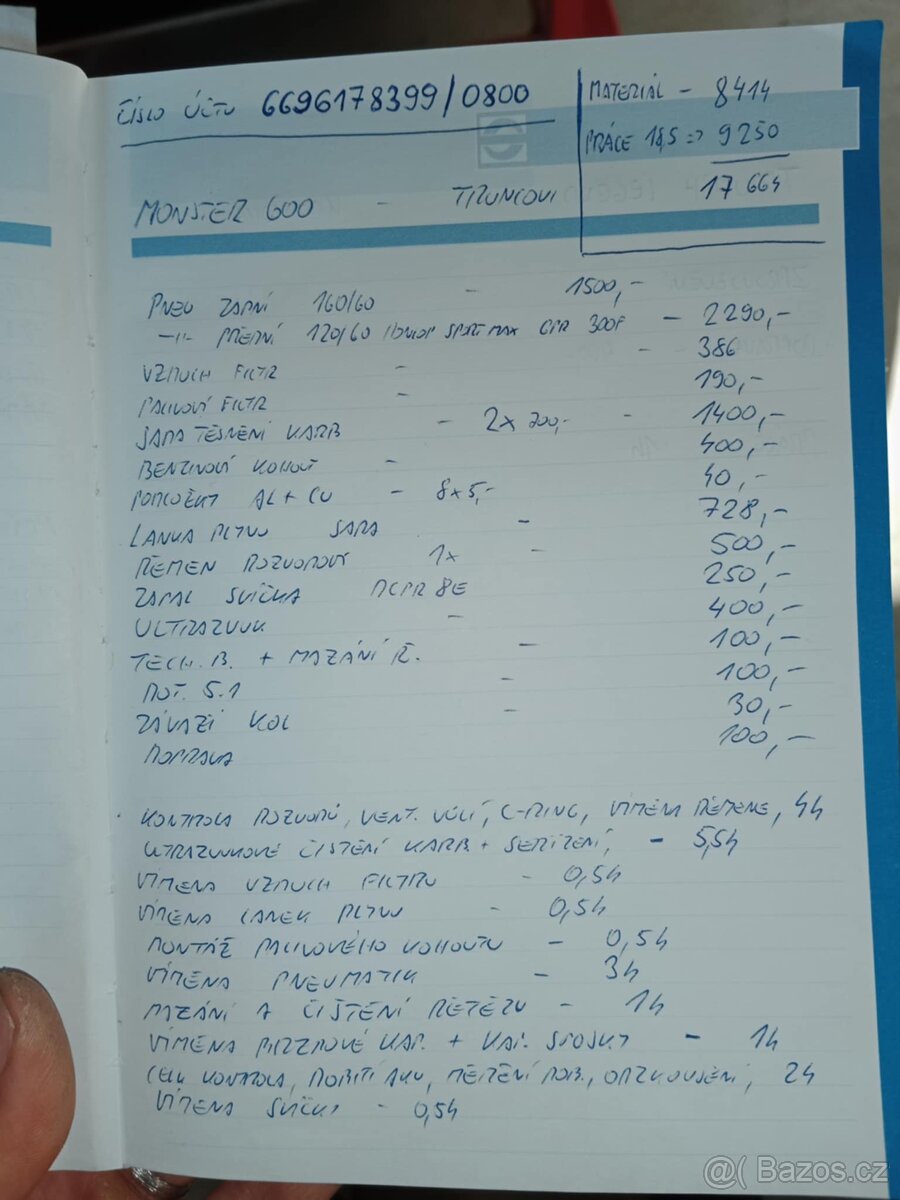 ČÍSLO ÚČTU 6696178399/0800
MATERIÁL - 8414
PRÁCE 18,5 => 9250
17 664
MONSTER 600 - TRUNCOVI
PNEU ZADNÍ 160/60 - 1500,-
-"- PŘEDNÍ 120/60 DUNLOP SPORTMAX GPR 300F - 2290,-
VZDUCH FILTR - 386
PALIVOVÝ FILTR - 190,-
SADA TĚSNĚNÍ KARB - 2x 700,- - 1400,-
BENZINOVÝ KOHOUT - 400,-
PODLOŽKY AL + CU - 8x5,- 40,-
LANKA PLYNU SADA - 728,-
ŘEMEN ROZVODOVÝ 1x - 500,-
ZAPAL SVÍČKA DCPR 8E 250,-
ULTRAZVUK - 400,-
TECH. B. + MAZÁNÍ Ř. - 100,-
DOT. 5.1 - 100,-
ZÁVAŽÍ KOL - 30,-
DOPRAVA 100,-
KONTROLA ROZVODŮ, VENT. VŮLÍ, C-RING, VÝMĚNA ŘEMENE, 4h
ULTRAZVUKOVÉ ČIŠTĚNÍ KARB + SEŘÍZENÍ, - 5,5h
VÝMĚNA VZDUCH FILTRU - 0,5h
VÝMĚNA LANEK PLYNU - 0,5h
MONTÁŽ PALIVOVÉHO KOHOUTU - 0,5h
VÝMĚNA PNEUMATIK - 3h
MAZÁNÍ A ČIŠTĚNÍ ŘETĚZU - 1h
VÝMĚNA BRZDOVÉ KAP. + KAP. SPOJKY - 1h
CELK KONTROLA, DOBITÍ AKU, MĚŘENÍ DOB., ODZKOUŠENÍ, 2h
VÝMĚNA SVÍČKY - 0,5h
@( Bazos.cz